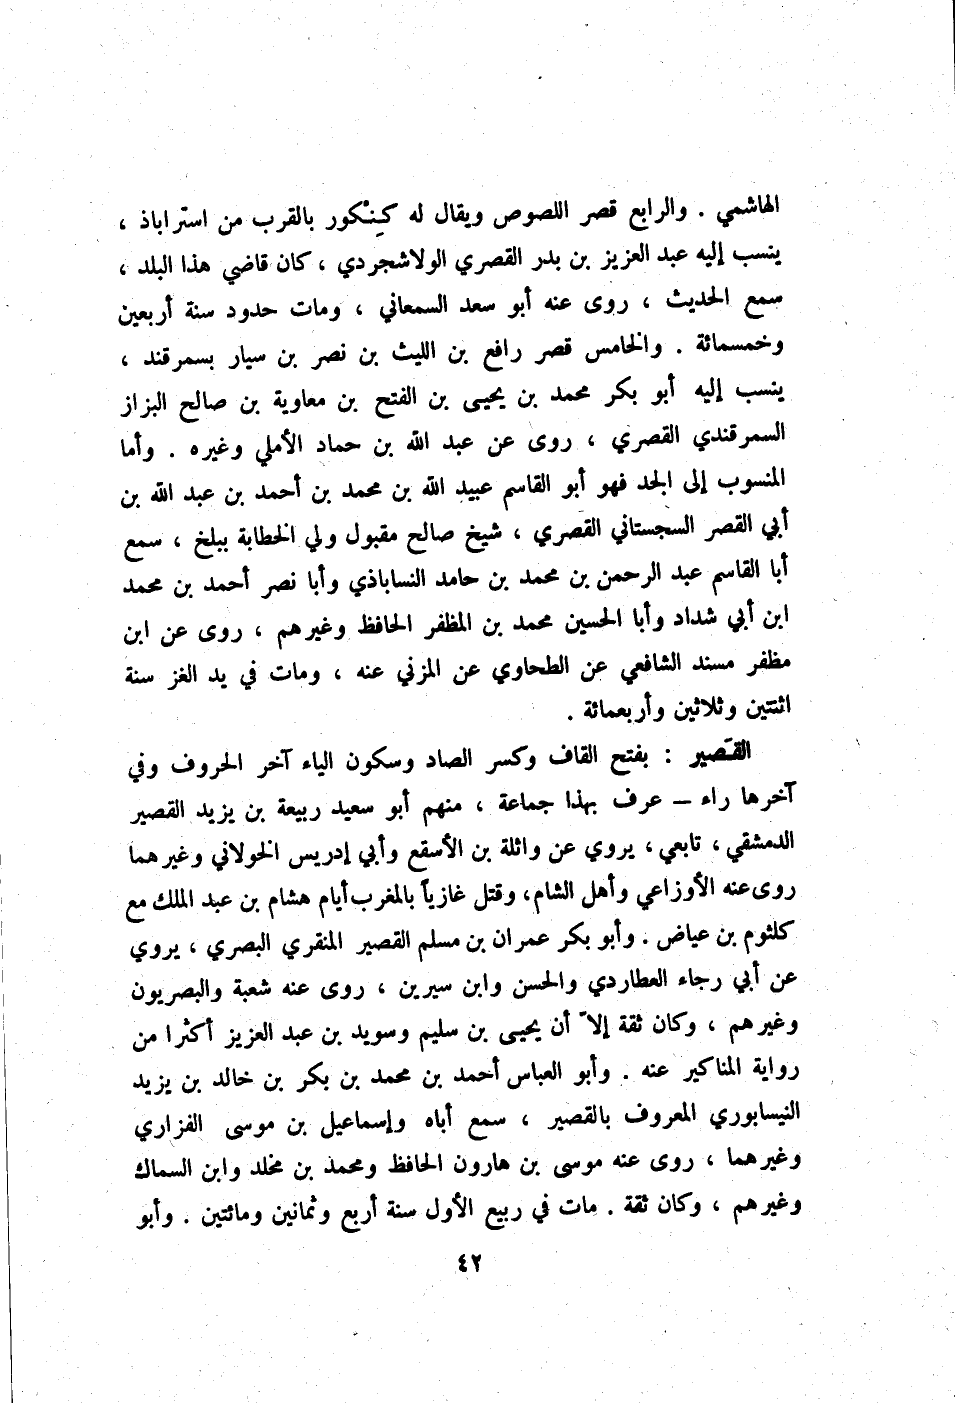 الهاشمي . والرابع قصر اللصوص ويقال له كِنْكور بالقرب من استراباذ ،
ينسب إليه عبد العزيز بن بدر القصري الولاشجردي ، كان قاضي هذا البلد ،
سمع الحديث ، روى عنه أبو سعد السمعاني ، ومات حدود سنة أربعين
وخمسمائة . والخامس قصر رافع بن الليث بن نصر بن سيار بسمرقند ،
ينسب إليه أبو بكر محمد بن يحيى بن الفتح بن معاوية بن صالح البزاز
السمرقندي القصري ، روى عن عبد الله بن حماد الأملي وغيره . وأما
المنسوب إلى الجد فهو أبو القاسم عبيد الله بن محمد بن أحمد بن عبد الله بن
أبي القصر السجستاني القصري ، شيخ صالح مقبول ولي الخطابة ببلخ ، سمع
أبا القاسم عبد الرحمن بن محمد بن حامد النساباذي وأبا نصر أحمد بن محمد
ابن أبي شداد وأبا الحسين محمد بن المظفر الحافظ وغيرهم ، روى عن ابن
مظفر مسند الشافعي عن الطحاوي عن المزني عنه ، ومات في يد الغز سنة
اثنتين وثلاثين وأربعمائة .
القَصير : بفتح القاف وكسر الصاد وسكون الياء آخر الحروف وفي
آخرها راء – عرف بهذا جماعة ، منهم أبو سعيد ربيعة بن يزيد القصير
الدمشقي ، تابعي ، يروي عن واثلة بن الأسقع وأبي إدريس الخولاني وغيرهما
روى عنه الأوزاعي وأهل الشام ، وقتل غازياً بالمغرب أيام هشام بن عبد الملك مع
كلثوم بن عياض . وأبو بكر عمران بن مسلم القصير المنقري البصري ، يروي
عن أبي رجاء العطاردي والحسن وابن سيرين ، روى عنه شعبة والبصريون
وغيرهم ، وكان ثقة إلاّ أن يحيى بن سليم وسويد بن عبد العزيز أكثرا من
رواية المناكير عنه . وأبو العباس أحمد بن محمد بن بكر بن خالد بن يزيد
النيسابوري المعروف بالقصير ، سمع أباه وإسماعيل بن موسى الفزاري
وغيرهما ، روى عنه موسى بن هارون الحافظ ومحمد بن مخلد وابن السماك
وغيرهم ، وكان ثقة . مات في ربيع الأول سنة أربع وثمانين ومائتين . وأبو
٤٢